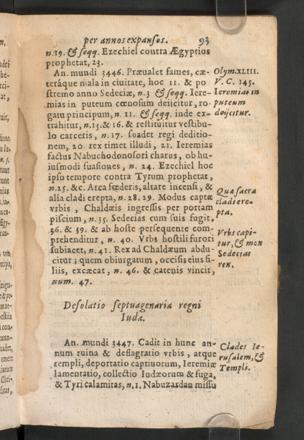 per annos expansos. 93
n.19. & seqq. Ezechiel contra Ægyptios
prophetat, 23.
An. mundi 3446. Præualet fames, cæ-
teráque mala in ciuitate, hoc 11. & po
stremo anno Sedeciæ, n.3 & seqq. Iere-
mias in puteum cœnosum deiicitur, ro-
gatu principum, n.11. & seqq. inde ex-
trahitur, n.15. & 16. & restituitur vestibu-
lo carceris, n.17. suadet regi deditio-
nem, 20. rex timet illudi, 21. Ieremias
factus Nabuchodonosori charos, ob hu-
iusmodi suasiones, n. 24. Ezechiel hoc
ipso tempore contra Tyrum prophetat,
n.25. &c. Arca fœderis, altare incensi, &
alia cladi erepta, n.28.29. Modus captæ
vrbis, Chaldæis ingressis per portam
piscium, n.35. Sedecias cum suis fugit,
36. & 39. & ab hoste persequente com-
prehenditur, n. 40. Vrbs hostili furori
subiacet, n.41. Rex ad Chaldæum abdu-
citur; quem obiurgatum, occisis eius fi-
liis, excæcat, n. 46. & catenis vincit,
num. 47.
Olym.XLIII.
V. C. 145.
Ieremias in
puteum
deijcitur.
Quæ sacra
cladi ere-
pta.
Vrbs capi-
tur, & mox
Sedecias
rex.
Desolatio septuagenaria regni
Iuda.
An. mundi 3447. Cadit in hunc an-
num ruina & deflagratio vrbis, atque
templi, deportatio captiuorum, Ieremiæ
lamentatio, collectio Iudæorum & fuga,
& Tyri calamitas, n.1. Nabuzardan missu
Clades Ie-
rusalem, &
Templi.